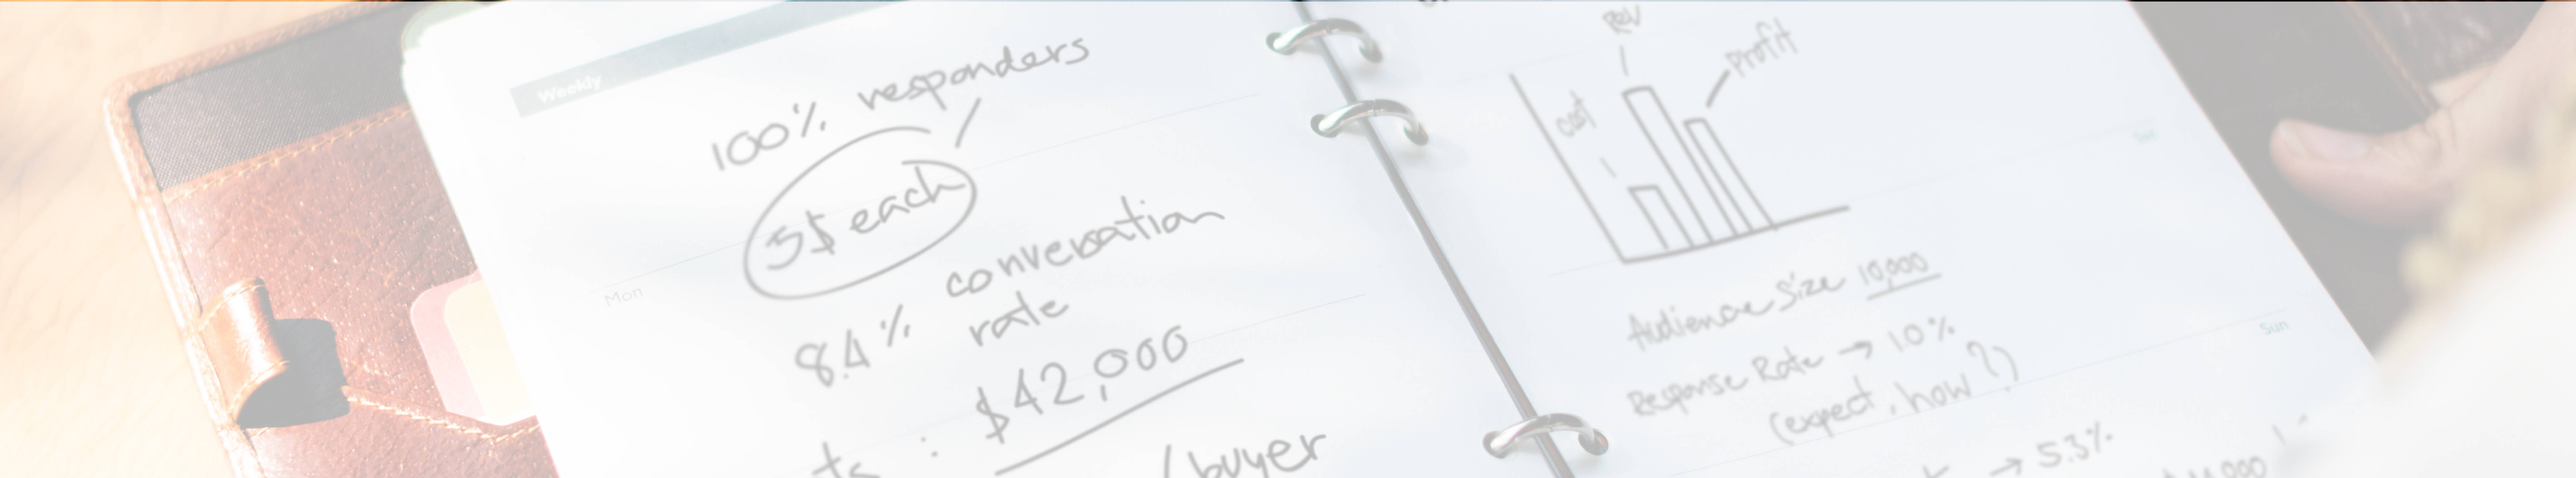 Weekly
100% responders
5$ each
Mon
8.4% convesation
rate
: $42,000
/ buyer
Rev
Profit
cost
Sat
Audience Size 10,000
Response Rate → 1.0%
(expect, how?)
Sun
→ 5.3%